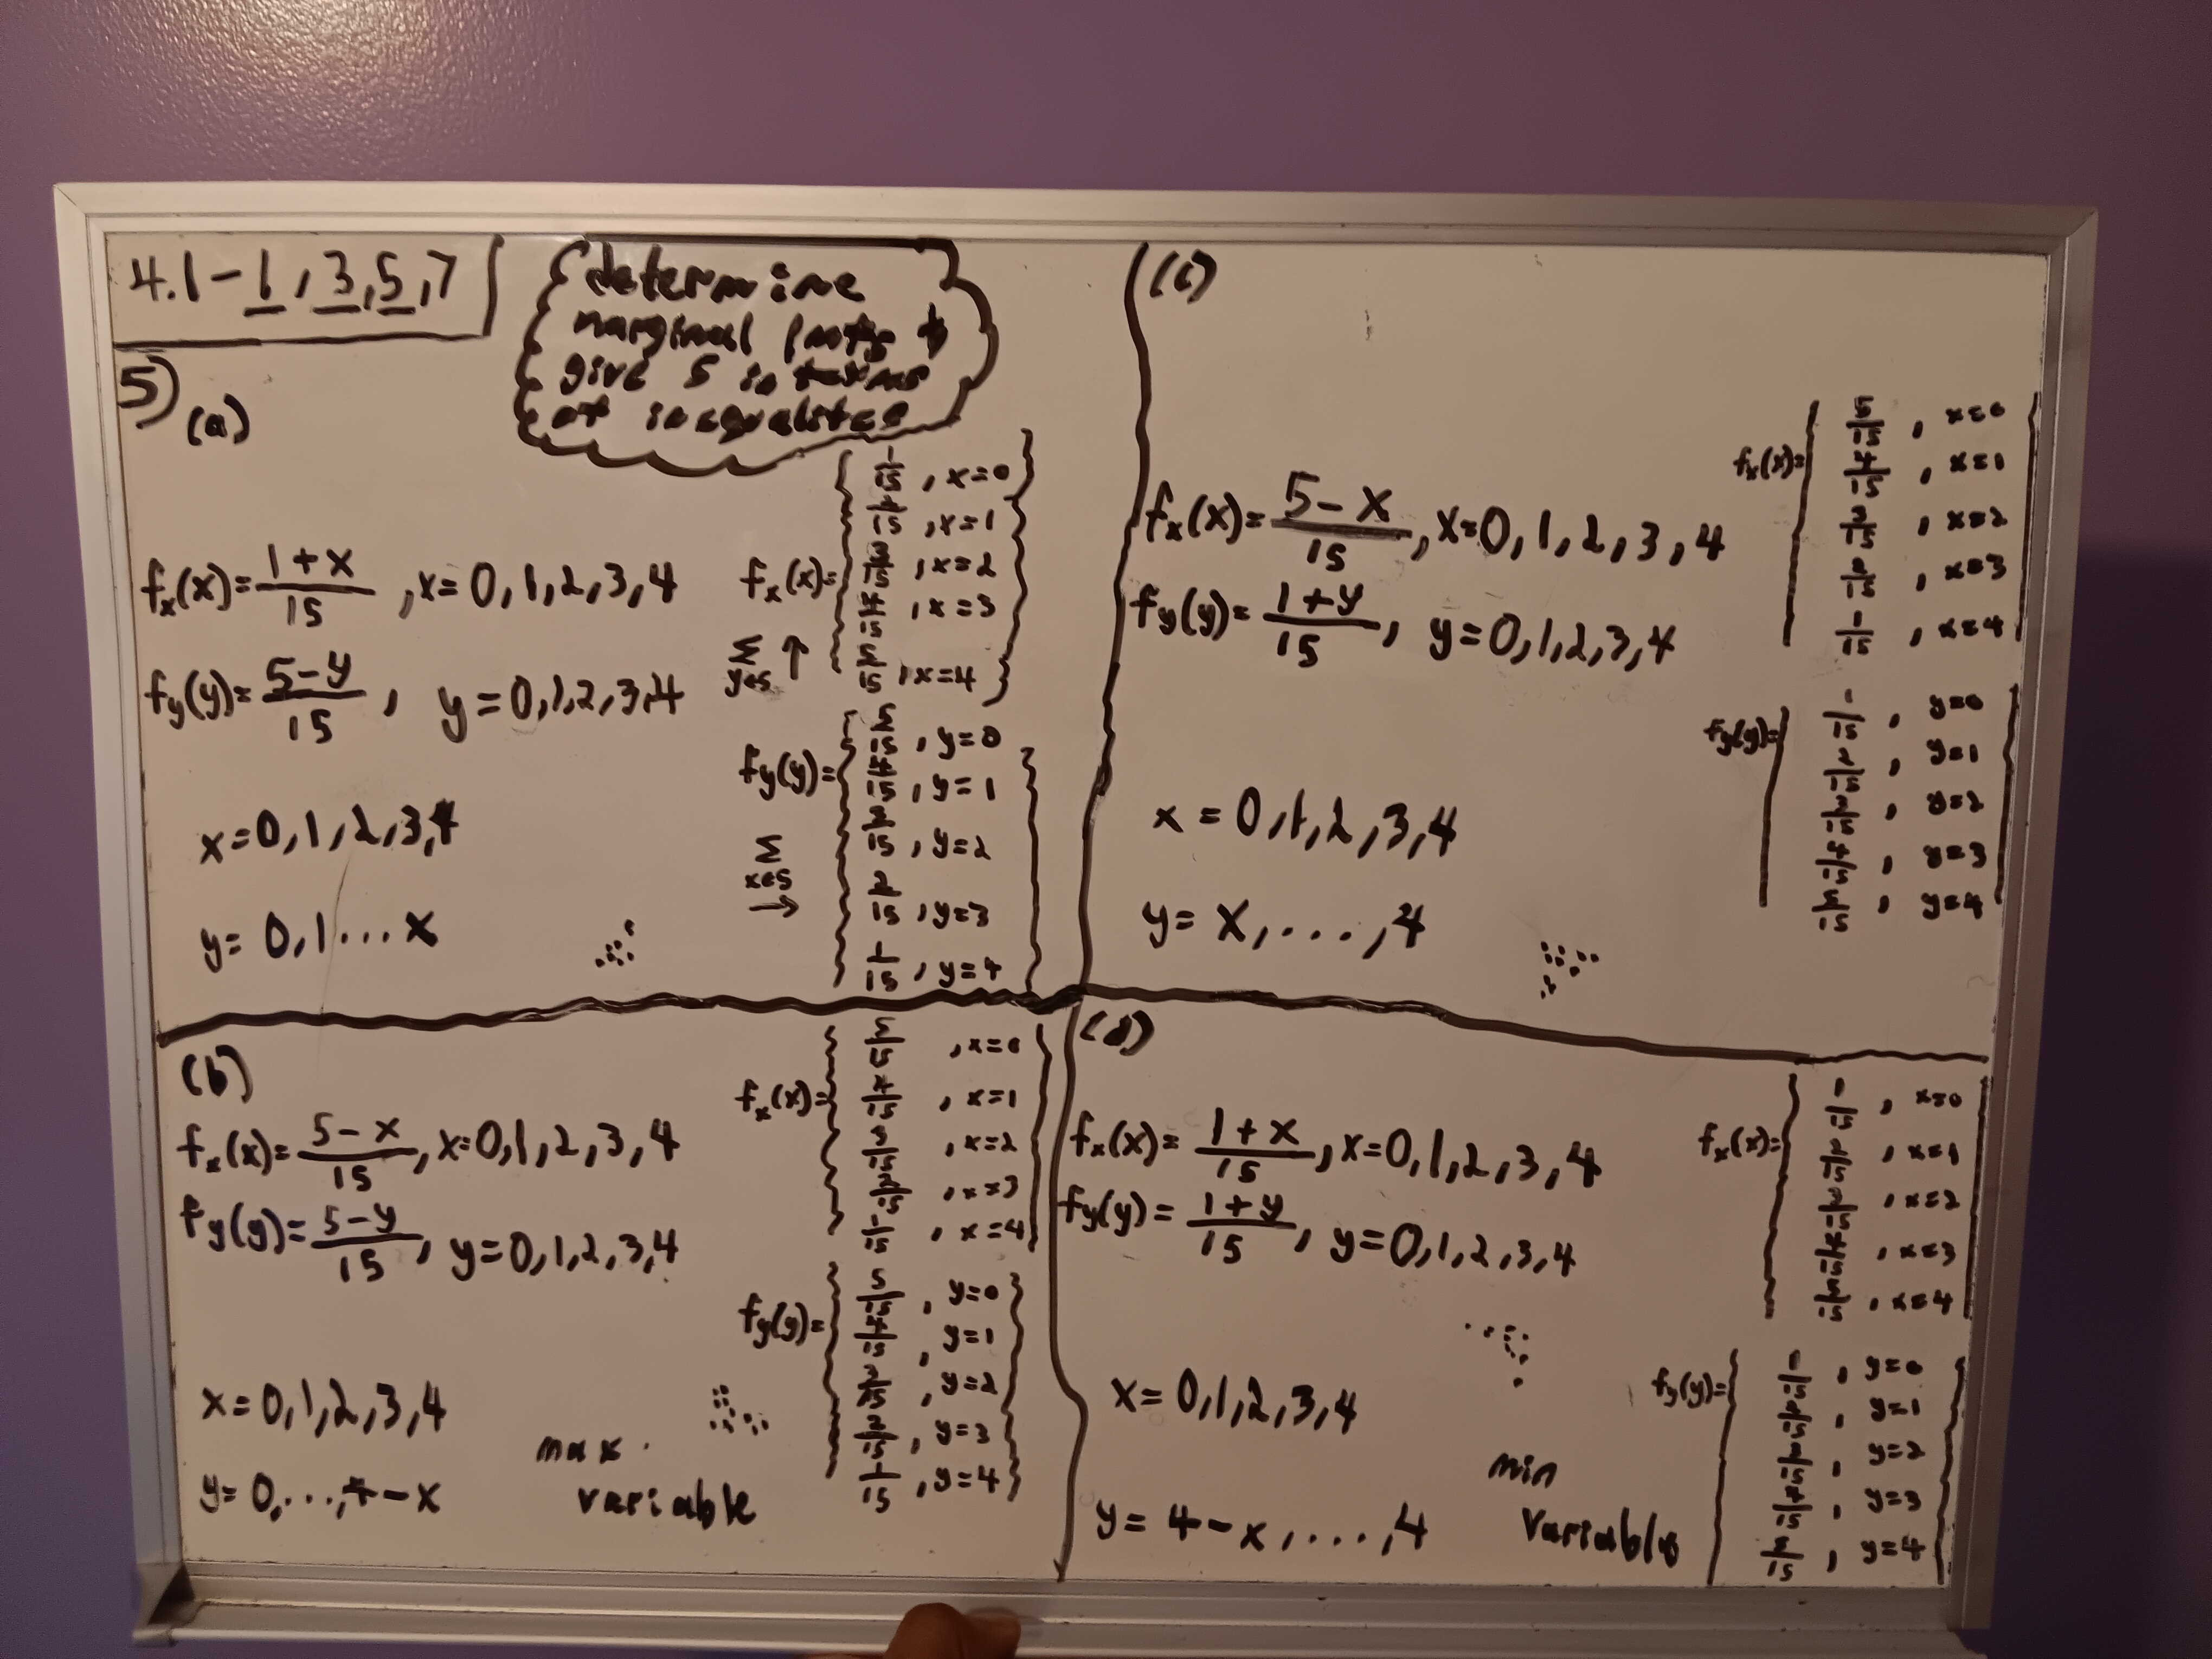 4.1-1, 3, 5, 7
determine
marginal &
give S in terms
of inequalities
5)
(a)
fx(x)= 1+x/15 , x=0,1,2,3,4
fy(y)= 5-y/15 , y=0,1,2,3,4
x=0,1,2,3,4
y=0,1...x
fx(x)=
1/15 , x=0
2/15 , x=1
3/15 , x=2
4/15 , x=3
5/15 , x=4
Σ y∈S ↑
fy(y)=
5/15 , y=0
4/15 , y=1
3/15 , y=2
2/15 , y=3
1/15 , y=4
Σ x∈S →
(b)
fx(x)= 5-x/15 , x=0,1,2,3,4
fy(y)= 5-y/15 , y=0,1,2,3,4
x=0,1,2,3,4
y=0,...,4-x
max
variable
fx(x)=
5/15 , x=0
4/15 , x=1
3/15 , x=2
2/15 , x=3
1/15 , x=4
fy(y)=
5/15 , y=0
4/15 , y=1
3/15 , y=2
2/15 , y=3
1/15 , y=4
(c)
fx(x)= 5-x/15 , x=0,1,2,3,4
fy(y)= 1+y/15 , y=0,1,2,3,4
x=0,1,2,3,4
y=x,...,4
fx(x)=
5/15 , x=0
4/15 , x=1
3/15 , x=2
2/15 , x=3
1/15 , x=4
fy(y)=
1/15 , y=0
2/15 , y=1
3/15 , y=2
4/15 , y=3
5/15 , y=4
(d)
fx(x)= 1+x/15 , x=0,1,2,3,4
fy(y)= 1+y/15 , y=0,1,2,3,4
x=0,1,2,3,4
y=4-x,...,4
min
variable
fx(x)=
1/15 , x=0
2/15 , x=1
3/15 , x=2
4/15 , x=3
5/15 , x=4
fy(y)=
1/15 , y=0
2/15 , y=1
3/15 , y=2
4/15 , y=3
5/15 , y=4